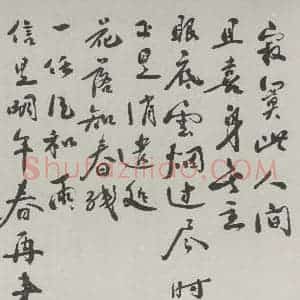 寂寞此人间
且喜身无主
眼底雲烟过尽时
正是逍遥处
花落知春残
一任风和雨
信是明年春再来